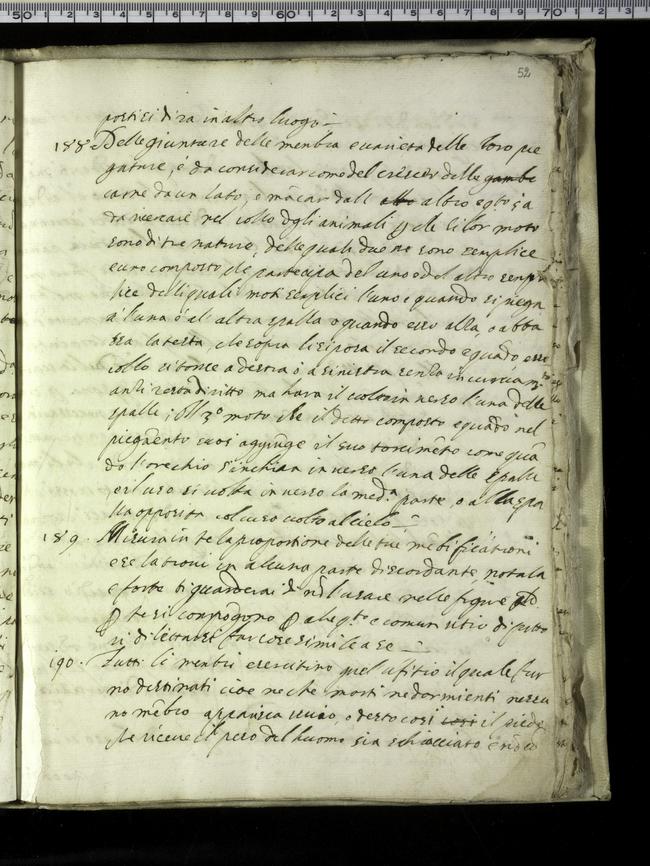 52
poeti si dira in altro luogo —
188 Delle giunture delle menbra e varieta delle loro pie
gature, é da considerar come del crescer delle gambe
carne da un lato, e mãcar dall altro altro e qto s'a
da cercare nel collo dgli animali, che li lor moti
sono di tre nature, delle quali due ne sono semplice
e uno composto, che partecipa del uno e del altro semp
lice delli quali moti semplici l'uno é quando si piega
a l'una ó al altra spalla o quando esso alza, o abba
ssa la testa, che sopra li si posa il secondo é quãdo esso
collo si torce a destra ó a sinistra senza incurvam.to
anzi resta diritto ma hara il volto in verso l'una delle
spalle; Il 3º moto che il detto composto é quãdo nel
piegam̃ento suo si aggiũge il suo torcimẽto come quã
do l'orechio s'inchina in verso l'una delle spalle
e il viso si volta in verso la med.a parte, o alla spa
lla opposita col viso volto al cielo —
189. Misura in te la proportione delle tue mẽbrificationi
e se la trovi in alcuna parte discordante notala
e forte ti guarderai di nõ l'usare nelle figure
te si conpõgono
vi dilettarsi far cose simile a se —
190. Tutti li menbri esercitino quel ufitio il quale fur
no destinati cioe ne che morti ne dormienti nessu
no mẽbro apparisca vivo, o desto cosi cosi il piede
che riceve il peso del huomo sia schiacciato e nõ cõ